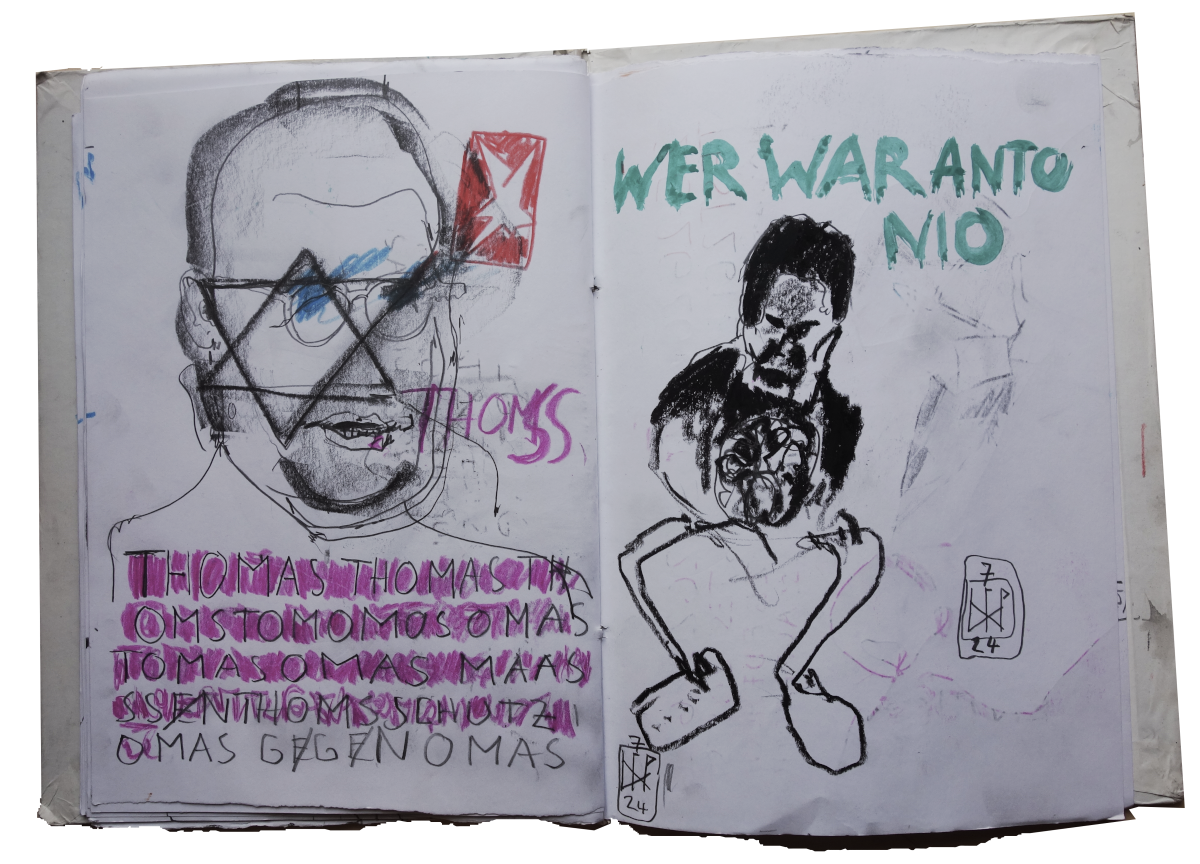 THOMSS
THOMAS THOMAS TH
OMSTOMOMAS OMAS
TOMAS OMAS MAAS
SSENTHOMSSCHUTZ
OMAS GEGEN OMAS
WER WAR ANTO
NIO
7
24
7
24